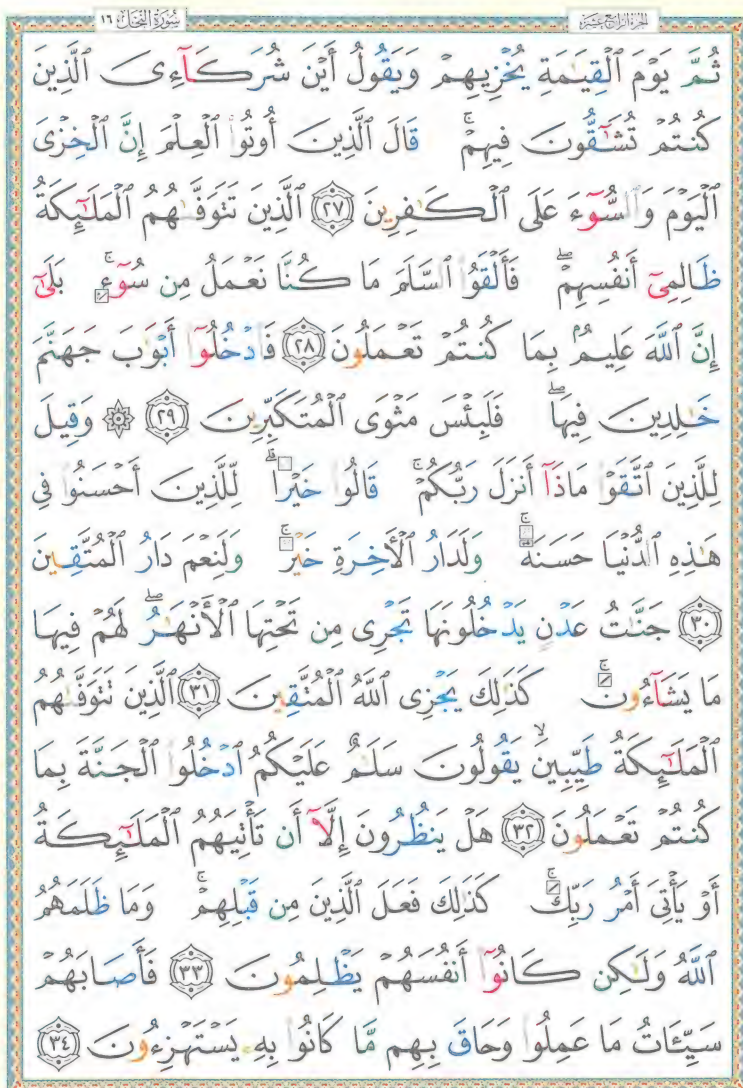 سُورَةُ النَّحْلِ ١٦
الجُزءُ الرَّابِعَ عَشَرَ
ثُمَّ يَوْمَ ٱلْقِيَٰمَةِ يُخْزِيهِمْ وَيَقُولُ أَيْنَ شُرَكَآءِىَ ٱلَّذِينَ
كُنتُمْ تُشَٰٓقُّونَ فِيهِمْ ۚ قَالَ ٱلَّذِينَ أُوتُوا۟ ٱلْعِلْمَ إِنَّ ٱلْخِزْىَ
ٱلْيَوْمَ وَٱلسُّوٓءَ عَلَى ٱلْكَٰفِرِينَ ﴿٢٧﴾ ٱلَّذِينَ تَتَوَفَّىٰهُمُ ٱلْمَلَٰٓئِكَةُ
ظَالِمِىٓ أَنفُسِهِمْ ۖ فَأَلْقَوُا۟ ٱلسَّلَمَ مَا كُنَّا نَعْمَلُ مِن سُوٓءٍۭ ۚ بَلَىٰٓ
إِنَّ ٱللَّهَ عَلِيمٌۢ بِمَا كُنتُمْ تَعْمَلُونَ ﴿٢٨﴾ فَٱدْخُلُوٓا۟ أَبْوَٰبَ جَهَنَّمَ
خَٰلِدِينَ فِيهَا ۖ فَلَبِئْسَ مَثْوَى ٱلْمُتَكَبِّرِينَ ﴿٢٩﴾ ۞ وَقِيلَ
لِلَّذِينَ ٱتَّقَوْا۟ مَاذَآ أَنزَلَ رَبُّكُمْ ۚ قَالُوا۟ خَيْرًا ۗ لِّلَّذِينَ أَحْسَنُوا۟ فِى
هَٰذِهِ ٱلدُّنْيَا حَسَنَةٌ ۚ وَلَدَارُ ٱلْأَخِرَةِ خَيْرٌ ۚ وَلَنِعْمَ دَارُ ٱلْمُتَّقِينَ
﴿٣٠﴾ جَنَّٰتُ عَدْنٍ يَدْخُلُونَهَا تَجْرِى مِن تَحْتِهَا ٱلْأَنْهَٰرُ ۖ لَهُمْ فِيهَا
مَا يَشَآءُونَ ۚ كَذَٰلِكَ يَجْزِى ٱللَّهُ ٱلْمُتَّقِينَ ﴿٣١﴾ ٱلَّذِينَ تَتَوَفَّىٰهُمُ
ٱلْمَلَٰٓئِكَةُ طَيِّبِينَ ۙ يَقُولُونَ سَلَٰمٌ عَلَيْكُمُ ٱدْخُلُوا۟ ٱلْجَنَّةَ بِمَا
كُنتُمْ تَعْمَلُونَ ﴿٣٢﴾ هَلْ يَنظُرُونَ إِلَّآ أَن تَأْتِيَهُمُ ٱلْمَلَٰٓئِكَةُ
أَوْ يَأْتِىَ أَمْرُ رَبِّكَ ۚ كَذَٰلِكَ فَعَلَ ٱلَّذِينَ مِن قَبْلِهِمْ ۚ وَمَا ظَلَمَهُمُ
ٱللَّهُ وَلَٰكِن كَانُوٓا۟ أَنفُسَهُمْ يَظْلِمُونَ ﴿٣٣﴾ فَأَصَابَهُمْ
سَيِّـَٔاتُ مَا عَمِلُوا۟ وَحَاقَ بِهِم مَّا كَانُوا۟ بِهِۦ يَسْتَهْزِءُونَ ﴿٣٤﴾